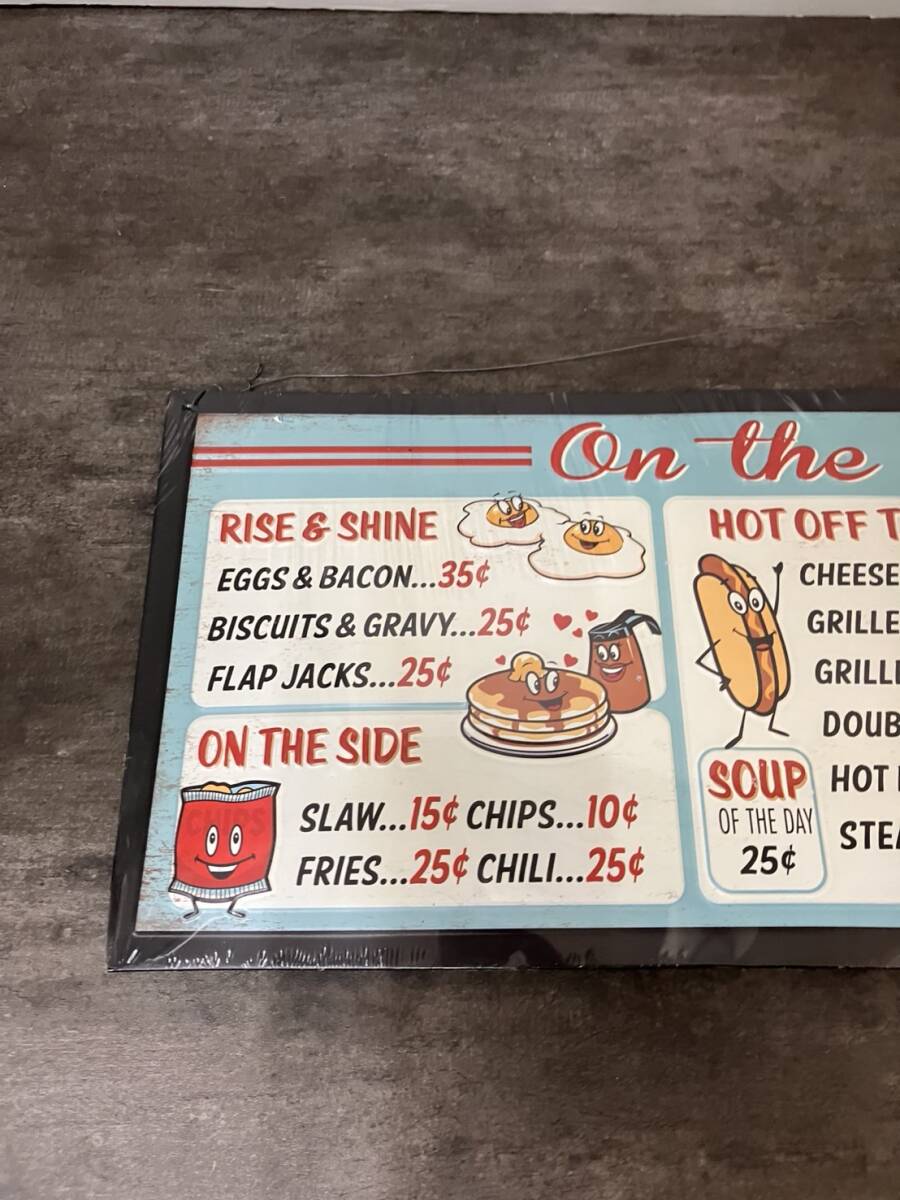 On the
RISE & SHINE
EGGS & BACON...35¢
BISCUITS & GRAVY...25¢
FLAP JACKS...25¢
ON THE SIDE
CHIPS
SLAW...15¢ CHIPS...10¢
FRIES...25¢ CHILI...25¢
HOT OFF T
CHEESE
GRILLE
GRILL
DOUB
HOT
STEA
SOUP
OF THE DAY
25¢